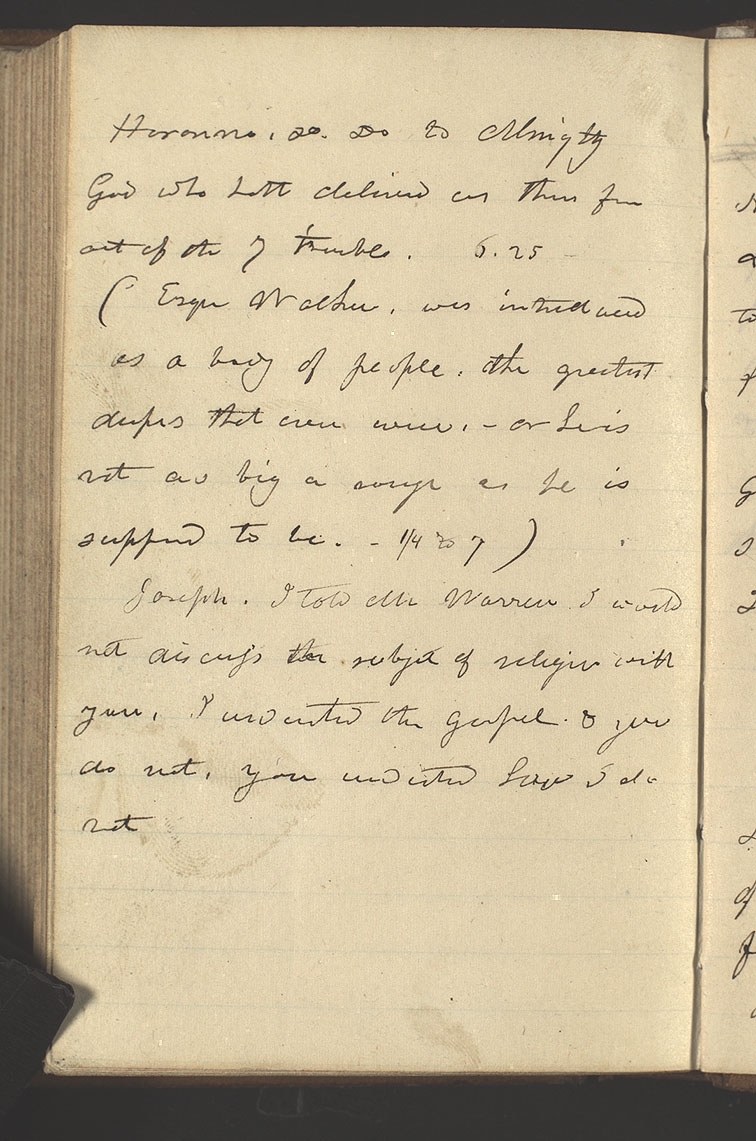 Hosanna. do. do to Almigty
God who hath delivered us thus far
out of the 7 troubles. 6.25
( Esqr Walker, was introduced
as a body of people. the greatest
dupes that ever were. - or he is
not as big a rouge as he is
supposed to be. - 1/4 to 7 )
Joseph. I told Mr Warren I would
not discuss the subject of religion with
you. I understand the gospel & you
do not. you understand Law I do
not